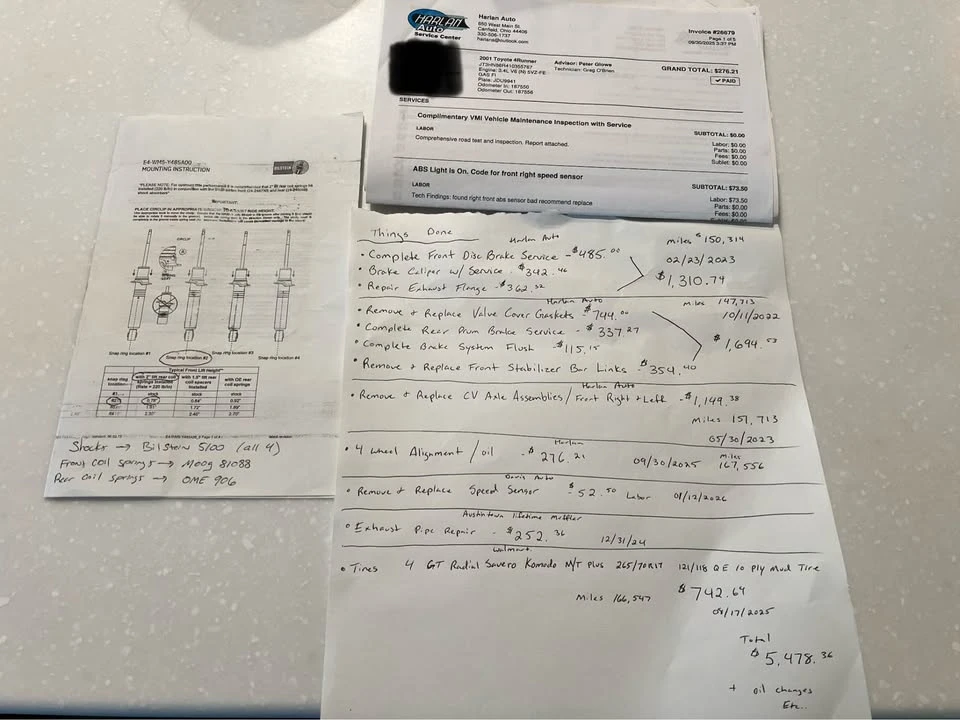 HARLAN
Auto
Service Center
Harlan Auto
650 West Main St.
Canfield, Ohio 44406
330-506-1737
harlans@outlook.com
Invoice #26679
Page 1 of 5
09/30/2025 3:37 PM
2001 Toyota 4Runner
Engine: 3.4L V6 (N) 5VZ-FE
GAS FI
Plate: JDU9941
Odometer In: 187550
Odometer Out: 187556
Advisor: Peter Glowe
Technician: Greg O'Brien
GRAND TOTAL: $276.21
✓ PAID
SERVICES
Complimentary VMI Vehicle Maintenance Inspection with Service
SUBTOTAL: $0.00
LABOR
Comprehensive road test and inspection. Report attached.
Labor: $0.00
Parts: $0.00
Fees: $0.00
Sublet: $0.00
ABS Light is On. Code for front right speed sensor
SUBTOTAL: $73.50
LABOR
Tech Findings: found right front abs sensor bad recommend replace
Labor: $73.50
Parts: $0.00
Fees: $0.00
E4-WM5-Y485A00
MOUNTING INSTRUCTION
BILSTEIN
PLACE CIRCLIP IN APPROPRIATE GROOVE TO ADJUST RIDE HEIGHT.
CIRCLIP
Snap ring location #1
Snap ring location #2
Snap ring location #3
Snap ring location #4
Typical Front Lift Height**
snap ring location
with 2" lift rear coil springs installed (Rate = 220 lb/in)
with 1.5" lift rear coil spacers installed
with OE rear coil springs
Shocks → Bilstein 5100 (all 4)
Front Coil Springs → Moog 81088
Rear Coil springs → OME 906
Things Done
Harlan Auto
miles 150,314
• Complete Front Disc Brake Service - $485.00
02/23/2023
• Brake Caliper w/ Service - $342.46
$1,310.79
• Repair Exhaust Flange - $362.52
Harlan Auto
Miles 147,713
• Remove & Replace Valve Cover Gaskets - $744.00
10/11/2022
• Complete Rear Drum Brake Service - $337.27
$1,694.53
• Complete Brake System Flush - $115.15
• Remove & Replace Front Stabilizer Bar Links - $354.40
Harlan Auto
• Remove & Replace CV Axle Assemblies / Front Right & Left - $1,149.38
Miles 151,713
05/30/2023
Harlan
• 4 Wheel Alignment / oil - $276.21 09/30/2025 Miles 167,556
Davis Auto
• Remove & Replace Speed Sensor - $52.50 Labor
Austintown lifetime Muffler
• Exhaust Pipe Repair - $252.36 12/31/24
Walmart
• Tires 4 GT Radial Savero Komodo M/T Plus 265/70R17 121/118 Q E 10 Ply Mud Tire
Miles 166,547 $742.64
09/17/2025
Total
$5,478.36
+ oil changes
Etc..